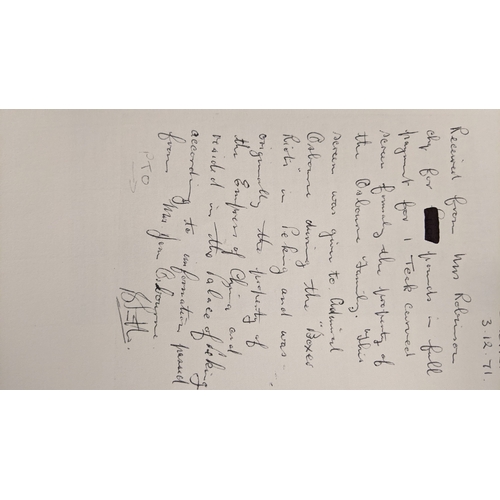 3.12.71.
Received from Mrs Robinson
chq for pounds in full
payment for 1 Teak carved
screen formaly the property of
the Osbourne family. This
screen was given to Admiral
Osbourne during the "Boxer
Riots" in Peking and was
originally the property of
the Empress of China and
resided in the Palace of Peking
according to information passed
from Mrs Osbourne
PTO